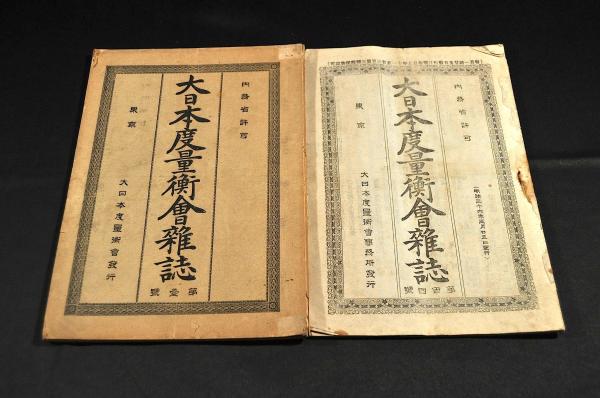 內務省許可
大日本度量衡會雜誌
第壹號
東京
大日本度量衡會發行
內務省許可
大日本度量衡會雜誌
東京
大日本度量衡會事務所發行